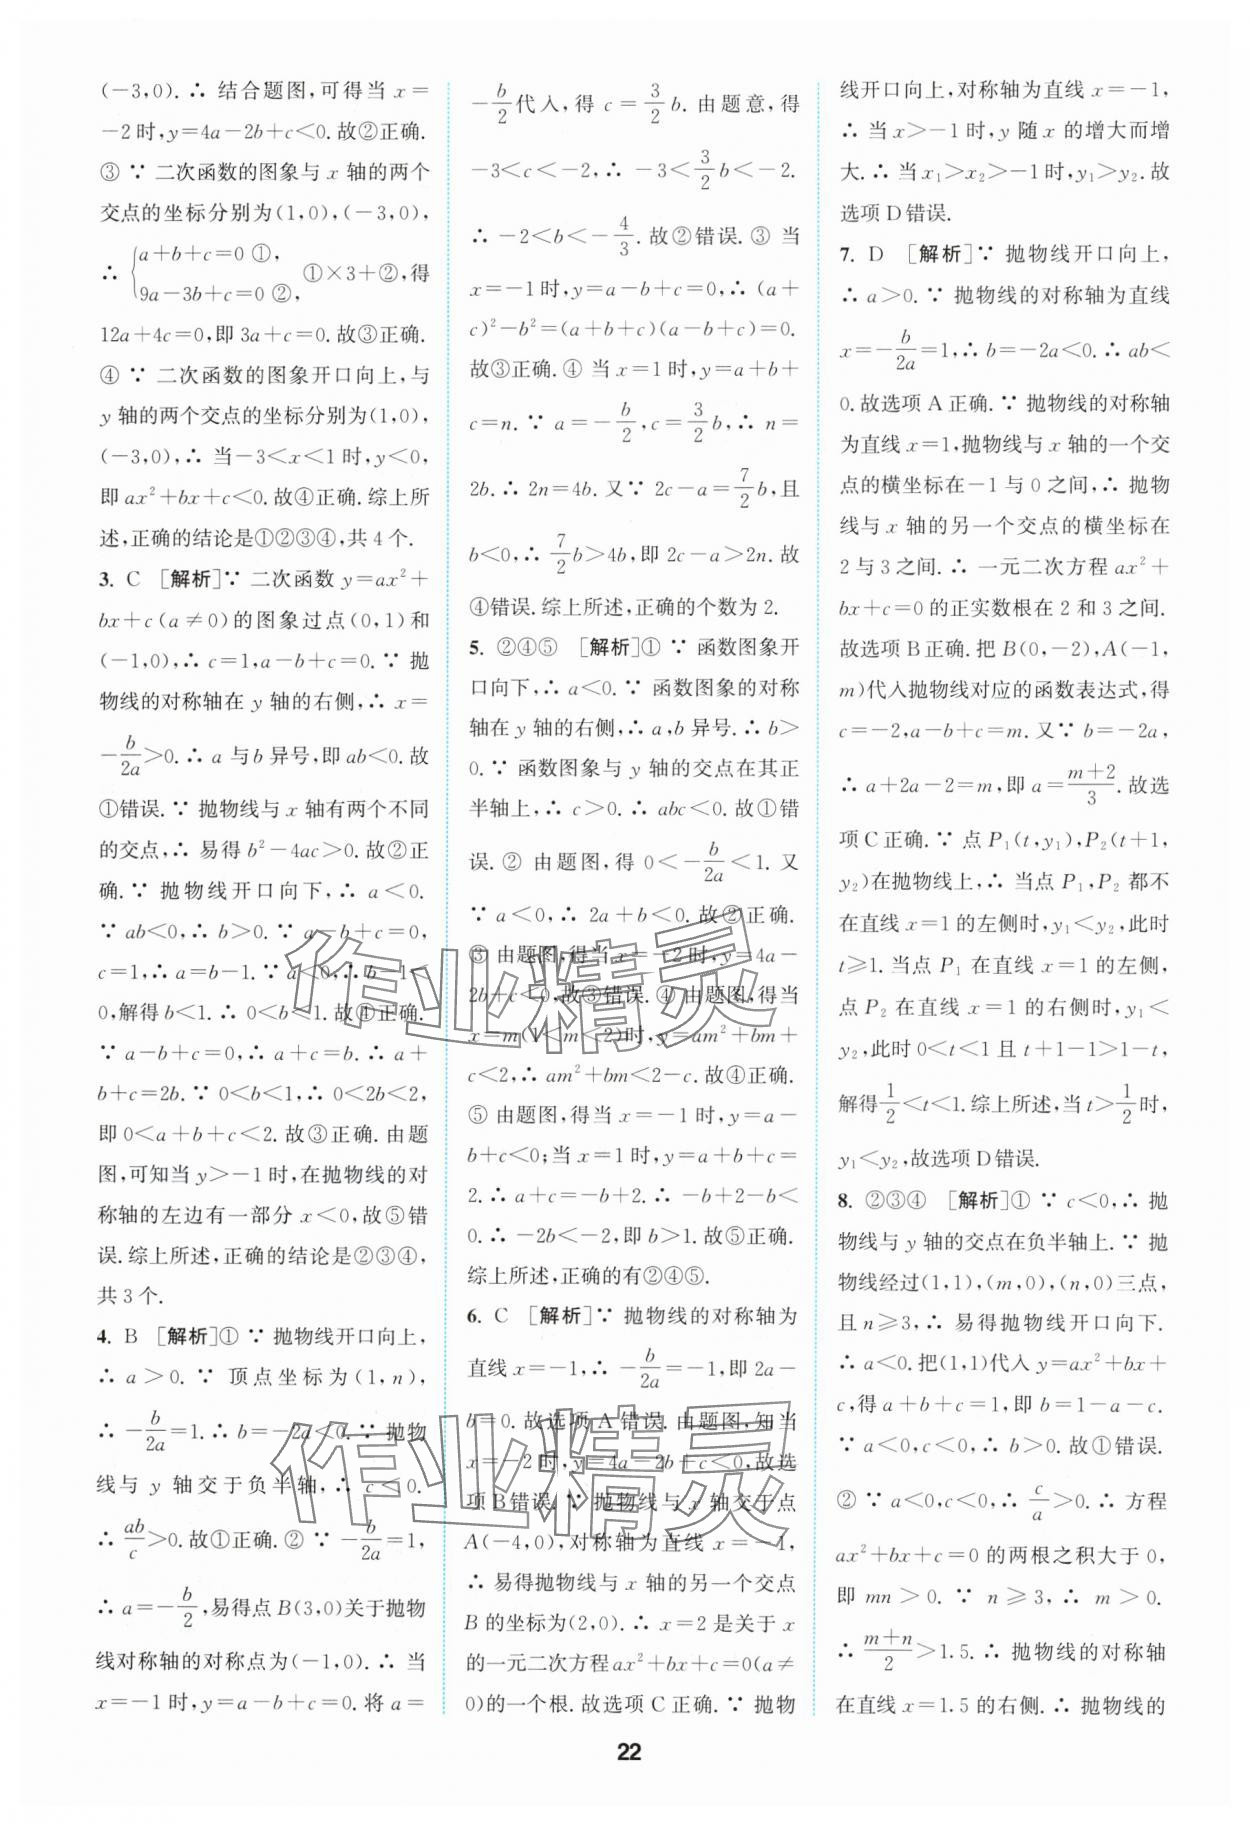 (-3,0). ∴ 结合题图,可得当 x=
-2时,y=4a-2b+c<0.故②正确.
③ ∵ 二次函数的图象与 x 轴的两个
交点的坐标分别为(1,0),(-3,0),
∴ {a+b+c=0 ①, 9a-3b+c=0 ②, ①×3+②,得
12a+4c=0,即 3a+c=0.故③正确.
④ ∵ 二次函数的图象开口向上,与
y 轴的两个交点的坐标分别为(1,0),
(-3,0),∴ 当-3<x<1时,y<0,
即 ax²+bx+c<0.故④正确.综上所
述,正确的结论是①②③④,共4个.
3. C [解析]∵ 二次函数 y=ax²+
bx+c(a≠0)的图象过点(0,1)和
(-1,0),∴ c=1,a-b+c=0.∵ 抛
物线的对称轴在 y 轴的右侧,∴ x=
-b/2a>0.∴ a 与b 异号,即 ab<0.故
①错误.∵ 抛物线与 x 轴有两个不同
的交点,∴ 易得 b²-4ac>0.故②正
确.∵ 抛物线开口向下,∴ a<0.
∵ ab<0,∴ b>0.∵ a-b+c=0,
c=1,∴ a=b-1.∵ a<0,∴ b-1<
0,解得 b<1.∴ 0<b<1.故④正确.
∵ a-b+c=0,∴ a+c=b.∴ a+
b+c=2b.∵ 0<b<1,∴ 0<2b<2,
即 0<a+b+c<2.故③正确.由题
图,可知当 y>-1时,在抛物线的对
称轴的左边有一部分 x<0,故⑤错
误.综上所述,正确的结论是②③④,
共3个.
4. B [解析]① ∵ 抛物线开口向上,
∴ a>0.∵ 顶点坐标为(1,n),
∴ -b/2a=1.∴ b=-2a<0.∵ 抛物
线与 y 轴交于负半轴,∴ c<0.
∴ ab/c>0.故①正确.② ∵ -b/2a=1,
∴ a=-b/2,易得点B(3,0)关于抛物
线对称轴的对称点为(-1,0).∴ 当
x=-1时,y=a-b+c=0.将 a=
-b/2代入,得 c=3/2b.由题意,得
-3<c<-2,∴ -3<3/2b<-2.
∴ -2<b<-4/3.故②错误.③ 当
x=-1时,y=a-b+c=0,∴ (a+
c)²-b²=(a+b+c)(a-b+c)=0.
故③正确.④ 当x=1时,y=a+b+
c=n.∵ a=-b/2,c=3/2b,∴ n=
2b.∴ 2n=4b.又∵ 2c-a=7/2b,且
b<0,∴ 7/2b>4b,即 2c-a>2n.故
④错误.综上所述,正确的个数为2.
5. ②④⑤ [解析]① ∵ 函数图象开
口向下,∴ a<0.∵ 函数图象的对称
轴在 y 轴的右侧,∴ a,b异号.∴ b>
0.∵ 函数图象与 y 轴的交点在其正
半轴上,∴ c>0.∴ abc<0.故①错
误.② 由题图,得 0<-b/2a<1.又
∵ a<0,∴ 2a+b<0.故②正确.
③ 由题图,得当x=-2时,y=4a-
2b+c<0,故③错误.④ 由题图,得当
x=m(1<m<2)时,y=am²+bm+
c<2,∴ am²+bm<2-c.故④正确.
⑤ 由题图,得当 x=-1时,y=a-
b+c<0;当 x=1时,y=a+b+c=
2.∴ a+c=-b+2.∴ -b+2-b<
0.∴ -2b<-2,即 b>1.故⑤正确.
综上所述,正确的有②④⑤.
6. C [解析]∵ 抛物线的对称轴为
直线 x=-1,∴ -b/2a=-1,即 2a-
b=0.故选项 A 错误.由题图,知当
x=-2时,y=4a-2b+c<0,故选
项B错误.∵ 抛物线与x 轴交于点
A(-4,0),对称轴为直线 x=-1,
∴ 易得抛物线与 x 轴的另一个交点
B 的坐标为(2,0).∴ x=2是关于 x
的一元二次方程ax²+bx+c=0(a≠
0)的一个根.故选项 C 正确.∵ 抛物
线开口向上,对称轴为直线 x=-1,
∴ 当 x>-1时,y 随 x 的增大而增
大.∴ 当 x₁>x₂>-1时,y₁>y₂.故
选项D错误.
7. D [解析]∵ 抛物线开口向上,
∴ a>0.∵ 抛物线的对称轴为直线
x=-b/2a=1,∴ b=-2a<0.∴ ab<
0.故选项 A 正确.∵ 抛物线的对称轴
为直线 x=1,抛物线与x 轴的一个交
点的横坐标在-1与0之间,∴ 抛物
线与 x 轴的另一个交点的横坐标在
2与3之间.∴ 一元二次方程 ax²+
bx+c=0的正实数根在2和3之间.
故选项B正确.把 B(0,-2),A(-1,
m)代入抛物线对应的函数表达式,得
c=-2,a-b+c=m.又∵ b=-2a,
∴ a+2a-2=m,即 a=m+2/3.故选
项C正确.∵ 点 P₁(t,y₁),P₂(t+1,
y₂)在抛物线上,∴ 当点 P₁,P₂ 都不
在直线 x=1的左侧时,y₁<y₂,此时
t≥1.当点 P₁ 在直线 x=1的左侧,
点 P₂ 在直线 x=1的右侧时,y₁<
y₂,此时 0<t<1且 t+1-1>1-t,
解得1/2<t<1.综上所述,当t>1/2时,
y₁<y₂,故选项D错误.
8. ②③④ [解析]① ∵ c<0,∴ 抛
物线与y 轴的交点在负半轴上.∵ 抛
物线经过(1,1),(m,0),(n,0)三点,
且 n≥3,∴ 易得抛物线开口向下.
∴ a<0.把(1,1)代入 y=ax²+bx+
c,得 a+b+c=1,即 b=1-a-c.
∵ a<0,c<0,∴ b>0.故①错误.
② ∵ a<0,c<0,∴ c/a>0.∴ 方程
ax²+bx+c=0的两根之积大于0,
即 mn>0.∵ n≥3,∴ m>0.
∴ m+n/2>1.5.∴ 抛物线的对称轴
在直线 x=1.5的右侧.∴ 抛物线的
22
作业精灵
作业精灵